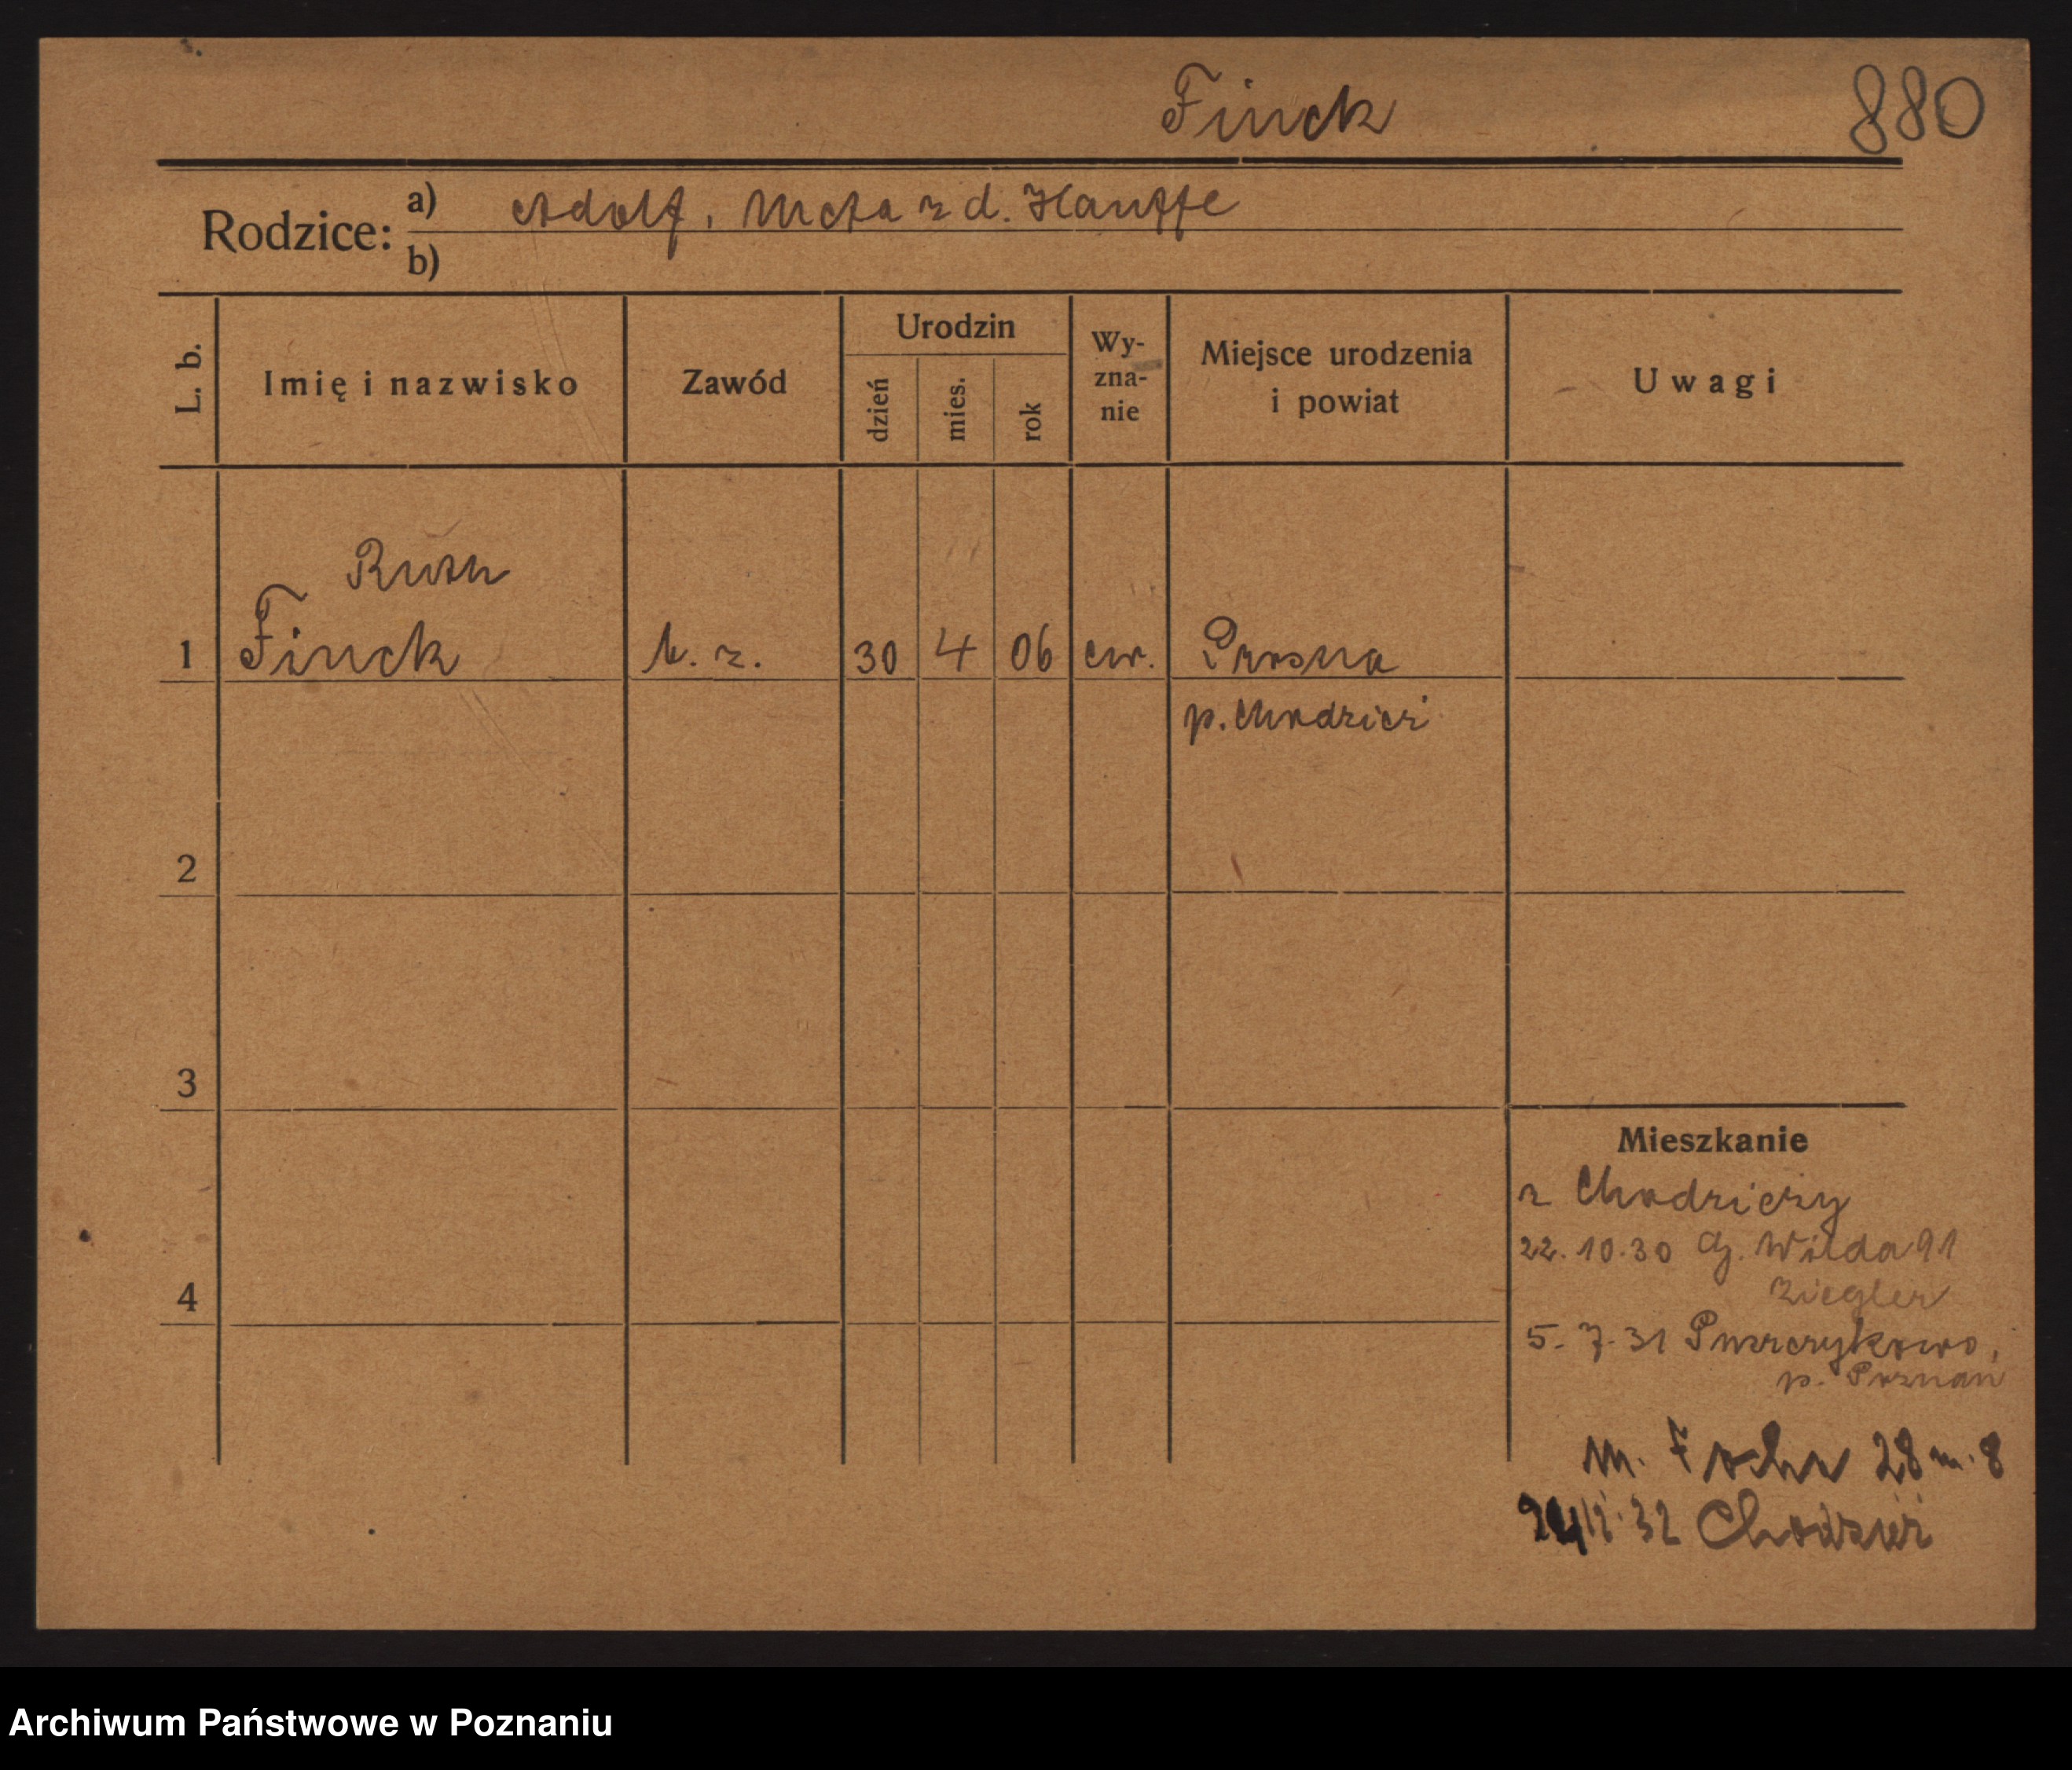 Finck
880
Rodzice:
a) Adolf, Meta z d. Hauffe
b)
L. b.
Imię i nazwisko
Zawód
Urodzin
dzień
mies.
rok
Wy-
zna-
nie
Miejsce urodzenia
i powiat
Uwagi
Ruth
1 Finck b. z. 30 4 06 ew. Prosna
p. Chodzież
2
3
4
Mieszkanie
z Chodzieży
22.10.30 G. Wilda 91
Ziegler
5.7.31 Puszczykowo,
p. Poznań
M. Focha 28 m. 8
32 Chodzież
Archiwum Państwowe w Poznaniu